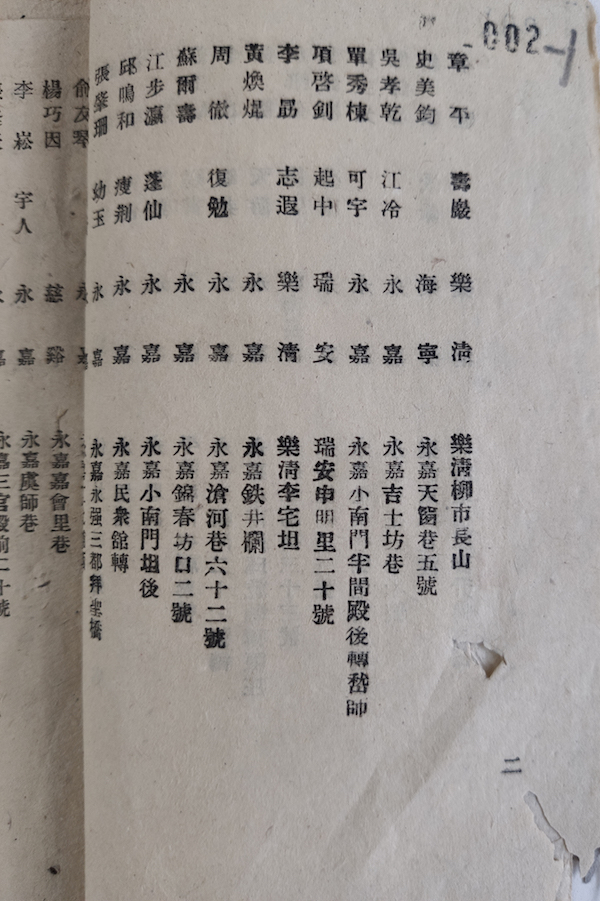 002-1
章平 壽嚴 樂清 樂清柳市長山
史美鈞 海寧 永嘉天窗巷五號
吳孝乾 江冷 永嘉 永嘉吉士坊巷
單秀棟 可宇 永嘉 永嘉小南門半間殿後轉嵇師
項啓釗 起中 瑞安 瑞安申明里二十號
李勗 志遐 樂清 樂清李宅坦
黃煥焜 永嘉 永嘉鉄井欄
周徹 復勉 永嘉 永嘉滄河巷六十二號
蘇爾壽 永嘉 永嘉錦春坊口二號
江步瀛 蓬仙 永嘉 永嘉小南門坦後
邱鳴和 瘦荆 永嘉 永嘉民衆館轉
張肇珊 幼玉 永嘉 永嘉永强三都拜聖橋
俞茂琴 永
楊巧因 慈谿 永嘉嘉會里巷
李崧 宇人 永嘉 永嘉虞師巷
永嘉三官殿前二十號
二